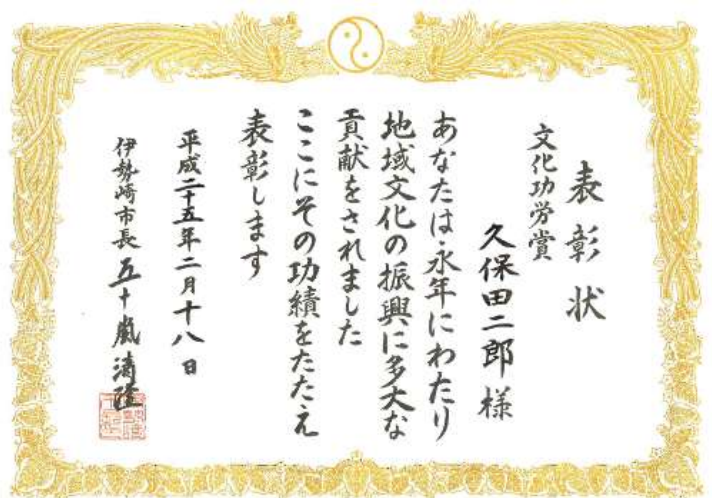 表彰状
文化功労賞
久保田二郎様
あなたは永年にわたり
地域文化の振興に多大な
貢献をされました
ここにその功績をたたえ
表彰します
平成二十五年二月十八日
伊勢崎市長 五十嵐清隆